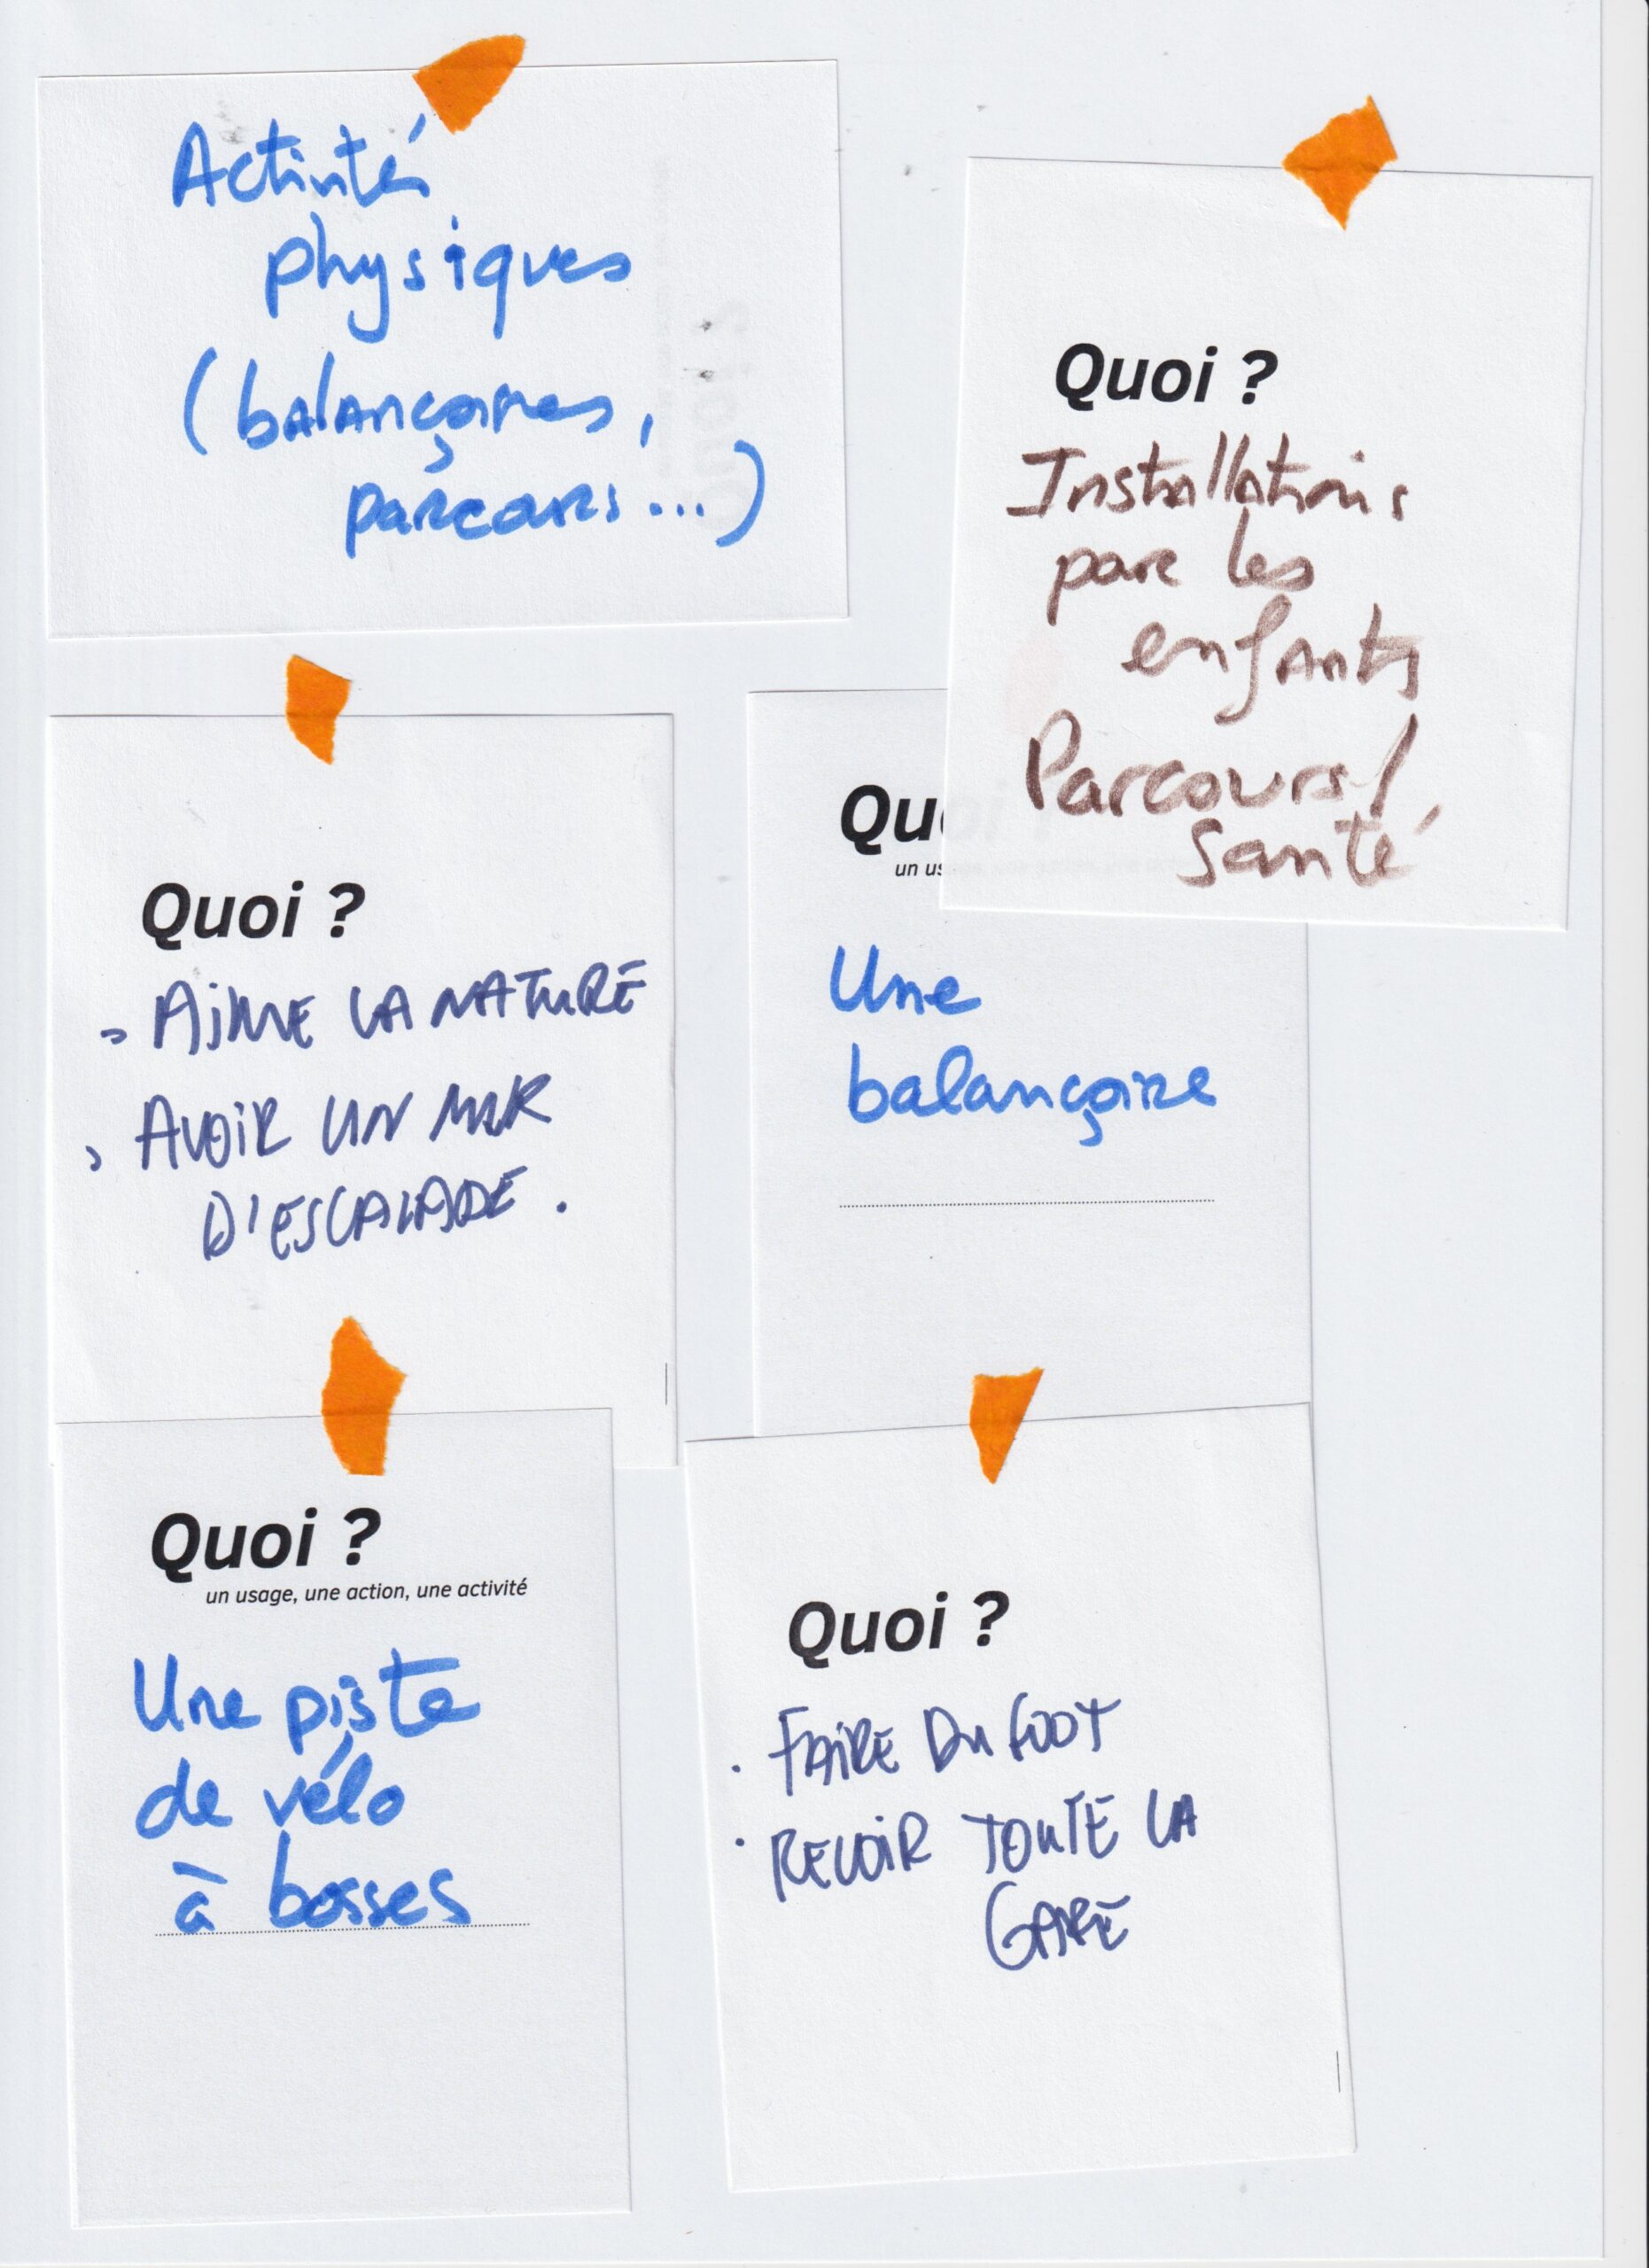 Activités
physiques
(balançoires,
parcours...)
Quoi ?
Installations
pour les
enfants
Parcours /
santé
Quoi ?
AIME LA NATURE
AVOIR UN MUR
D'ESCALADE.
Qu
un us
Une
balançoire
Quoi ?
un usage, une action, une activité
Une piste
de vélo
à bosses
Quoi ?
. FAIRE DU FOOT
. REVOIR TOUTE LA
GARE